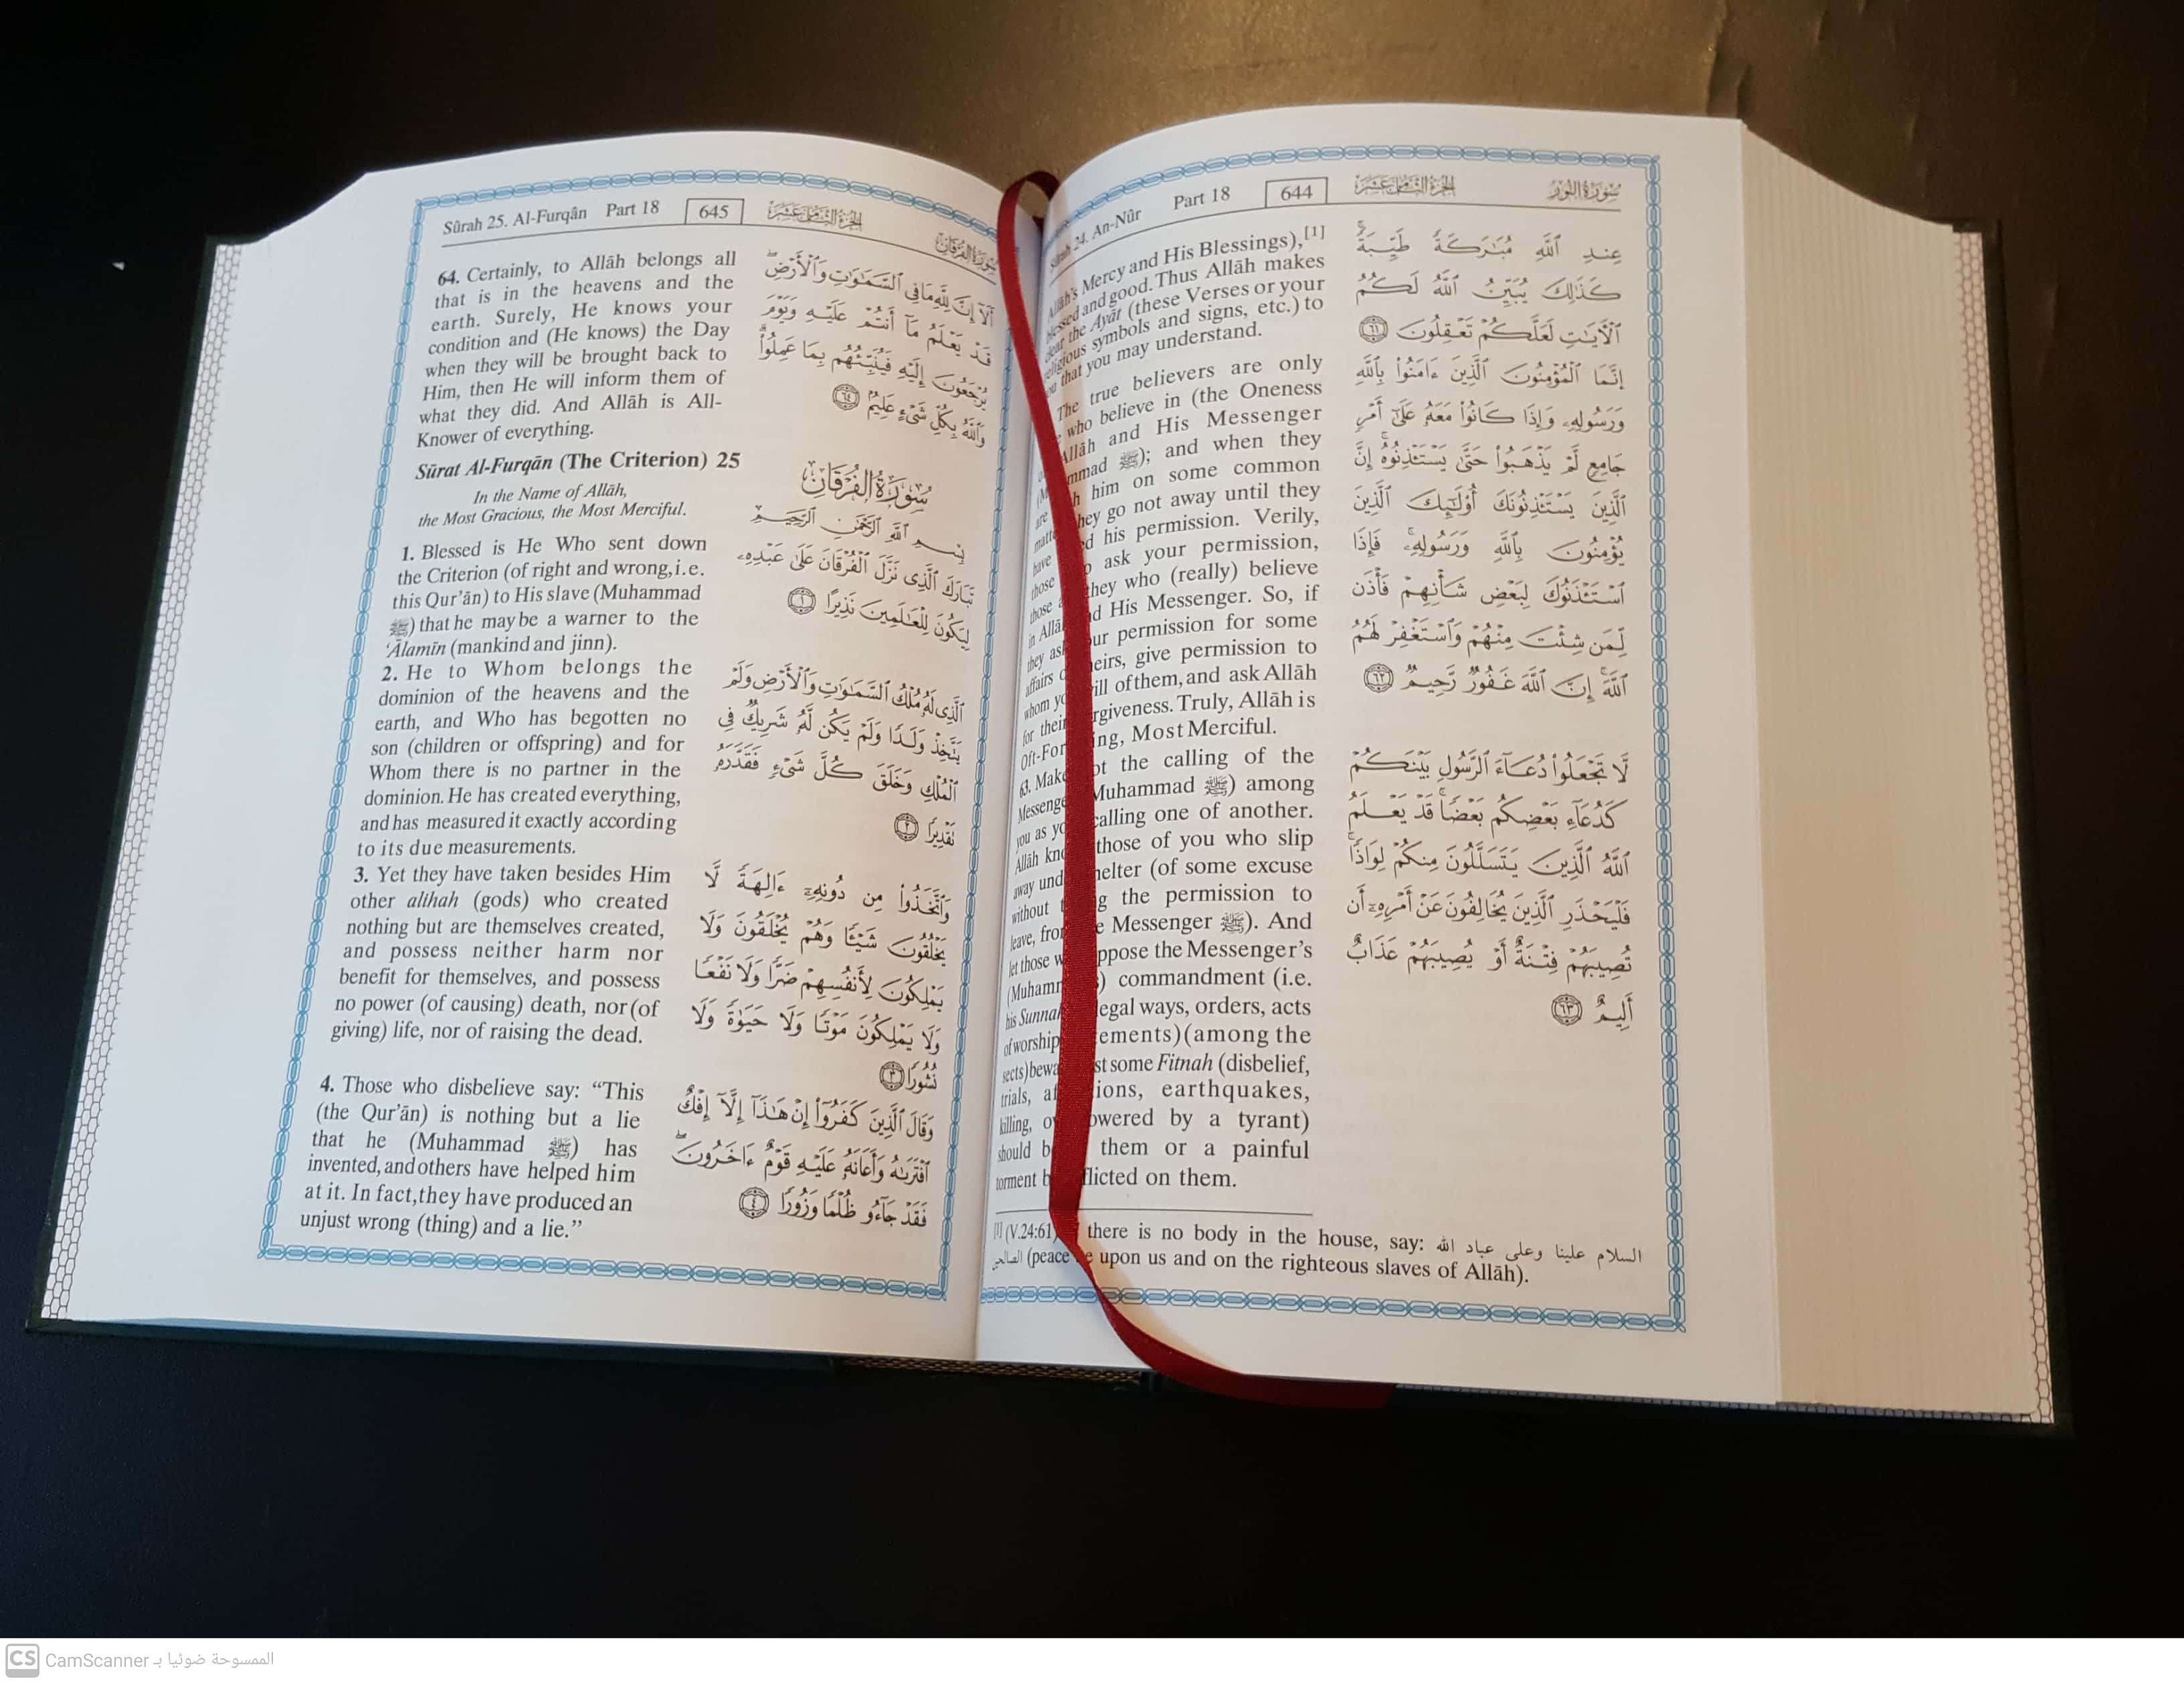 Sûrah 24. An-Nûr Part 18 644 الجزء الثامن عشر سورة النور
Allāh's Mercy and His Blessings),[1]
blessed and good. Thus Allāh makes
clear the Ayāt (these Verses or your
religious symbols and signs, etc.) to
you that you may understand.
The true believers are only
who believe in (the Oneness
Allāh and His Messenger
ﷺ); and when they
are him on some common
they go not away until they
have his permission. Verily,
those ask your permission,
those they who (really) believe
in His Messenger. So, if
they permission for some
affairs give permission to
whom of them, and ask Allāh
for their Truly, Allāh is
Most Merciful.
63. Make the calling of the
(Muhammad ﷺ) among
you as calling one of another.
Allāh those of you who slip
away (of some excuse
without the permission to
leave, Messenger ﷺ). And
let those oppose the Messenger's
commandment (i.e.
his legal ways, orders, acts
of worship, (among the
sects) some Fitnah (disbelief,
trials, earthquakes,
killing, by a tyrant)
should them or a painful
torment on them.
عِندِ ٱللَّهِ مُبَٰرَكَةً طَيِّبَةً ۚ
كَذَٰلِكَ يُبَيِّنُ ٱللَّهُ لَكُمُ
ٱلْءَايَٰتِ لَعَلَّكُمْ تَعْقِلُونَ ٦١
إِنَّمَا ٱلْمُؤْمِنُونَ ٱلَّذِينَ ءَامَنُوا۟ بِٱللَّهِ
وَرَسُولِهِۦ وَإِذَا كَانُوا۟ مَعَهُۥ عَلَىٰٓ أَمْرٍ
جَامِعٍ لَّمْ يَذْهَبُوا۟ حَتَّىٰ يَسْتَـْٔذِنُوهُ ۚ إِنَّ
ٱلَّذِينَ يَسْتَـْٔذِنُونَكَ أُو۟لَٰٓئِكَ ٱلَّذِينَ
يُؤْمِنُونَ بِٱللَّهِ وَرَسُولِهِۦ ۚ فَإِذَا
ٱسْتَـْٔذَنُوكَ لِبَعْضِ شَأْنِهِمْ فَأْذَن
لِّمَن شِئْتَ مِنْهُمْ وَٱسْتَغْفِرْ لَهُمُ
ٱللَّهَ ۚ إِنَّ ٱللَّهَ غَفُورٌ رَّحِيمٌ ٦٢
لَّا تَجْعَلُوا۟ دُعَآءَ ٱلرَّسُولِ بَيْنَكُمْ
كَدُعَآءِ بَعْضِكُم بَعْضًا ۚ قَدْ يَعْلَمُ
ٱللَّهُ ٱلَّذِينَ يَتَسَلَّلُونَ مِنكُمْ لِوَاذًا ۚ
فَلْيَحْذَرِ ٱلَّذِينَ يُخَالِفُونَ عَنْ أَمْرِهِۦٓ أَن
تُصِيبَهُمْ فِتْنَةٌ أَوْ يُصِيبَهُمْ عَذَابٌ
أَلِيمٌ ٦٣
[1] (V.24:61) there is no body in the house, say: السلام علينا وعلى عباد الله
الصالحين (peace upon us and on the righteous slaves of Allāh).
Sûrah 25. Al-Furqân Part 18 645 الجزء الثامن عشر سورة الفرقان
64. Certainly, to Allāh belongs all
that is in the heavens and the
earth. Surely, He knows your
condition and (He knows) the Day
when they will be brought back to
Him, then He will inform them of
what they did. And Allāh is All-
Knower of everything.
Sūrat Al-Furqān (The Criterion) 25
In the Name of Allāh,
the Most Gracious, the Most Merciful.
1. Blessed is He Who sent down
the Criterion (of right and wrong, i.e.
this Qur'ān) to His slave (Muhammad
ﷺ) that he may be a warner to the
'Ālamīn (mankind and jinn).
2. He to Whom belongs the
dominion of the heavens and the
earth, and Who has begotten no
son (children or offspring) and for
Whom there is no partner in the
dominion. He has created everything,
and has measured it exactly according
to its due measurements.
3. Yet they have taken besides Him
other alihah (gods) who created
nothing but are themselves created,
and possess neither harm nor
benefit for themselves, and possess
no power (of causing) death, nor (of
giving) life, nor of raising the dead.
4. Those who disbelieve say: “This
(the Qur'ān) is nothing but a lie
that he (Muhammad ﷺ) has
invented, and others have helped him
at it. In fact, they have produced an
unjust wrong (thing) and a lie.”
أَلَآ إِنَّ لِلَّهِ مَا فِى ٱلسَّمَٰوَٰتِ وَٱلْأَرْضِ ۖ
قَدْ يَعْلَمُ مَآ أَنتُمْ عَلَيْهِ وَيَوْمَ
يُرْجَعُونَ إِلَيْهِ فَيُنَبِّئُهُم بِمَا عَمِلُوا۟ ۗ
وَٱللَّهُ بِكُلِّ شَىْءٍ عَلِيمٌۢ ٦٤
سُورَةُ الفُرْقَانِ
بِسْمِ ٱللَّهِ ٱلرَّحْمَٰنِ ٱلرَّحِيمِ
تَبَارَكَ ٱلَّذِى نَزَّلَ ٱلْفُرْقَانَ عَلَىٰ عَبْدِهِۦ
لِيَكُونَ لِلْعَٰلَمِينَ نَذِيرًا ١
ٱلَّذِى لَهُۥ مُلْكُ ٱلسَّمَٰوَٰتِ وَٱلْأَرْضِ وَلَمْ
يَتَّخِذْ وَلَدًا وَلَمْ يَكُن لَّهُۥ شَرِيكٌ فِى
ٱلْمُلْكِ وَخَلَقَ كُلَّ شَىْءٍ فَقَدَّرَهُۥ
تَقْدِيرًا ٢
وَٱتَّخَذُوا۟ مِن دُونِهِۦٓ ءَالِهَةً لَّا
يَخْلُقُونَ شَيْـًٔا وَهُمْ يُخْلَقُونَ وَلَا
يَمْلِكُونَ لِأَنفُسِهِمْ ضَرًّا وَلَا نَفْعًا
وَلَا يَمْلِكُونَ مَوْتًا وَلَا حَيَوٰةً وَلَا
نُشُورًا ٣
وَقَالَ ٱلَّذِينَ كَفَرُوٓا۟ إِنْ هَٰذَآ إِلَّآ إِفْكٌ
ٱفْتَرَىٰهُ وَأَعَانَهُۥ عَلَيْهِ قَوْمٌ ءَاخَرُونَ ۖ
فَقَدْ جَآءُو ظُلْمًا وَزُورًا ٤
CS CamScanner الممسوحة ضوئيا بـ